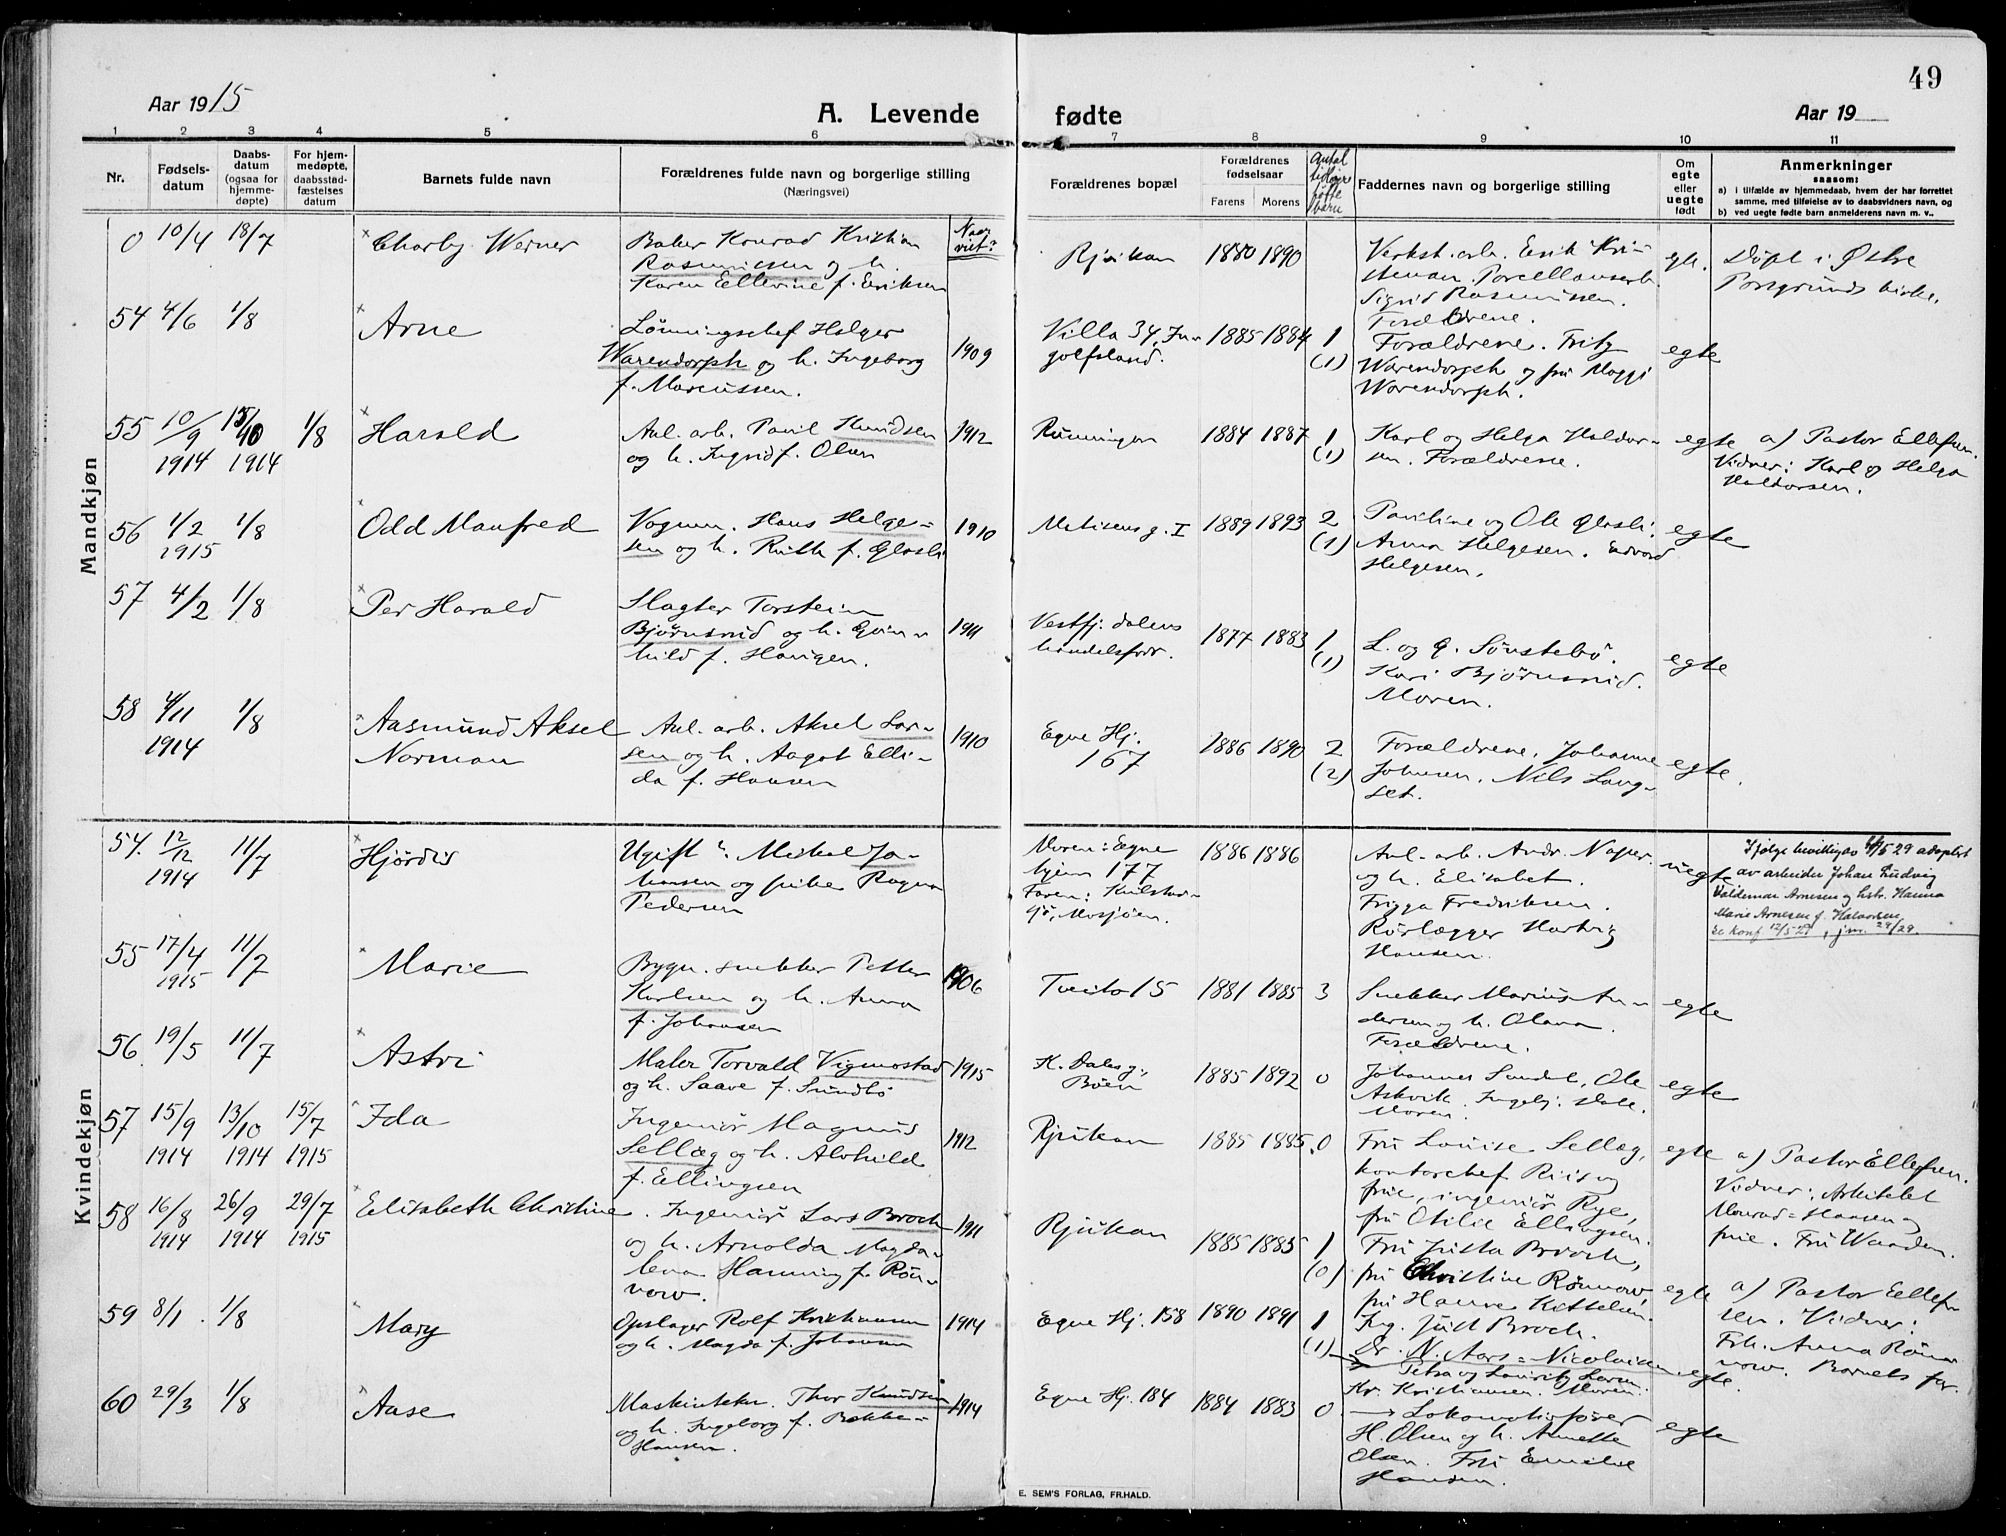 49
Aar 1915
A. Levende
fødte
Aar 19
1 2 3 4 5 6 7 8 9 10 11
Nr.
Fødsels-
datum
Daabs-
datum
(ogsaa for
hjemme-
døpte)
For hjem-
medøpte,
daabsstad-
fæstelses
datum
Barnets fulde navn
Forældrenes fulde navn og borgerlige stilling
(Næringsvei)
Naar
viet?
Forældrenes bopæl
Forældrenes
fødselsaar
Farens Morens
Antal
tidligere
fødte
barn
Faddernes navn og borgerlige stilling
Om
egte
eller
uegte
født
Anmerkninger
saasom:
a) i tilfælde av hjemmedaab, hvem der har forrettet
samme, med tilføielse av to daabsvidners navn, og
b) ved uegte fødte barn anmelderens navn m. v..
Mandkjøn
0 10/4 18/7 Charly Werner
Baker Konrad Kristian
Rasmussen og h.
Karen Ellevine f. Eriksen
Rjukan 1880 1890
Verkst. arb. Erik Kri-
stensen. Porcellænsarb.
Sigrid Rasmussen.
Forældrene.
egte. Døpt i Østre
Porsgrunds kirke.
54 4/6 1/8 Arne
Lønningschef Holger
Warendorph og h. Ingeborg
f. Marcussen.
1909
Villa 34, In-
golfsland.
1885 1884 1
(1)
Forældrene. Fritz
Warendorph og fru Maggi
Warendorph.
egte
55 10/9 1914 15/10 1914 1/8 Harald
Anl. arb. Paul Knudsen
og h. Ingrid f. Olsen
1912
Rünningen 1884 1887 1
(1)
Karl og Helga Haldor-
sen. Forældrene.
egte a) Pastor Ellefsen.
Vidner: Karl og Helga
Haldorsen.
56 1/2 1915 1/8 Odd Manfred
Vognm. Hans Helge-
sen og h. Ruth f. Gloslі
1910
Mathisens g. I 1889 1893 2
(1)
Pauline og Ole Glosli.
Anna Helgesen. Edvard
Helgesen.
egte
57 4/2 1/8 Per Harald
Slagter Torstein
Bjørnsrud og h. Gun-
hild f. Haugen.
1911
Vestfj. dalens
handelsfor.
1877 1883 1
(1)
L. og G. Sønstebø.
Kari Bjørnsrud.
Moren.
egte
58 4/11 1914 1/8 Aasmund Aksel
Norman
Anl. arb. Aksel Lar-
sen og h. Aagot Elli-
da f. Hansen
1910
Egne Hj.
167
1886 1890 2
(2)
Forældrene. Johanne
Johnsen. Nils Lang-
set.
egte.
Kvindekjøn
54. 12/12 1914 11/7 Hjørdis
Ugift Mikal Jo-
hansen og pike Ragna
Pedersen
Moren: Egne
hjem 177
Faren:
Mosjøen.
1886 1886
Anl. arb. Andr. Naper
og h. Elisabet.
Frigga Fredriksen.
Rørlægger Hartvig
Hansen.
uegte
Ifølge bevilling av 4/5 29 adoptert
av arbeider Johan Ludvig
Valdemar Arnesen og hstr. Hanna
Marie Arnesen f. Halvorsen
Se konf 12/5 29, jnr. 29/29.
55 17/4 1915 11/7 Marie
Bygn. snekker Petter
Karlsen og h. Anna
f. Johansen
1906
Tveito 15 1881 1885 3
Snekker Marius An-
dersen og h. Olava.
Forældrene.
egte
56 19/5 11/7 Astri
Maler Torvald Vigmostad
og h. Saave f. Sundbö
1915
K. Dales g.,
Bøen
1885 1892 0
Johannes Sundet, Ole
Askvik. Ingebj. Dale.
Moren.
egte
57 15/9 1914 13/10 1914 15/7 1915 Ida
Ingeniør Magnus
Sellæg og h. Alvhilde
f. Ellingsen
1912
Rjukan 1885 1885 0
Fru Louise Sellæg,
kontorchef Riis og
frue, ingeniør Rye,
fru Otilie Ellingsen.
egte a) Pastor Ellefsen.
Vidner: Arkitekt
Monrad-Hansen og
frue. Fru Waaden.
58 16/8 1914 26/9 1914 29/7 1915 Elisabeth Christine.
Ingeniør Lars Broch
og h. Arnolda Magda-
lena Hanning f. Røn-
now.
1911
Rjukan 1885 1885 1
(0)
Fru Justa Broch,
fru Christine Rønnow,
fru Hanne Kittelsen,
Ing. Just Broch.
Dr. N. Aars-Nicolaisen
egte a) Pastor Ellef-
sen. Vidner:
Frk. Anna Røn-
now. Barnets far.
59 8/1. 1/8 Mary
Opslager Rolf Kristiansen
og h. Magda f. Johansen
1914
Egne Hj. 158 1890 1891 1
(1)
Petra og Lauritz Larsen
Kr. Kristiansen. Moren.
egte.
60 29/3 1/8 Aase
Maskintekn. Thor Knudsen
og h. Ingeborg f. Bakke-
Hansen.
1914
Egne Hj. 184 1884 1883 0
Lokomotivfører
H. Olsen og h. Annette
Olsen. Fru Emilie
Hansen.
egte
E. SEM'S FORLAG, FR.HALD.